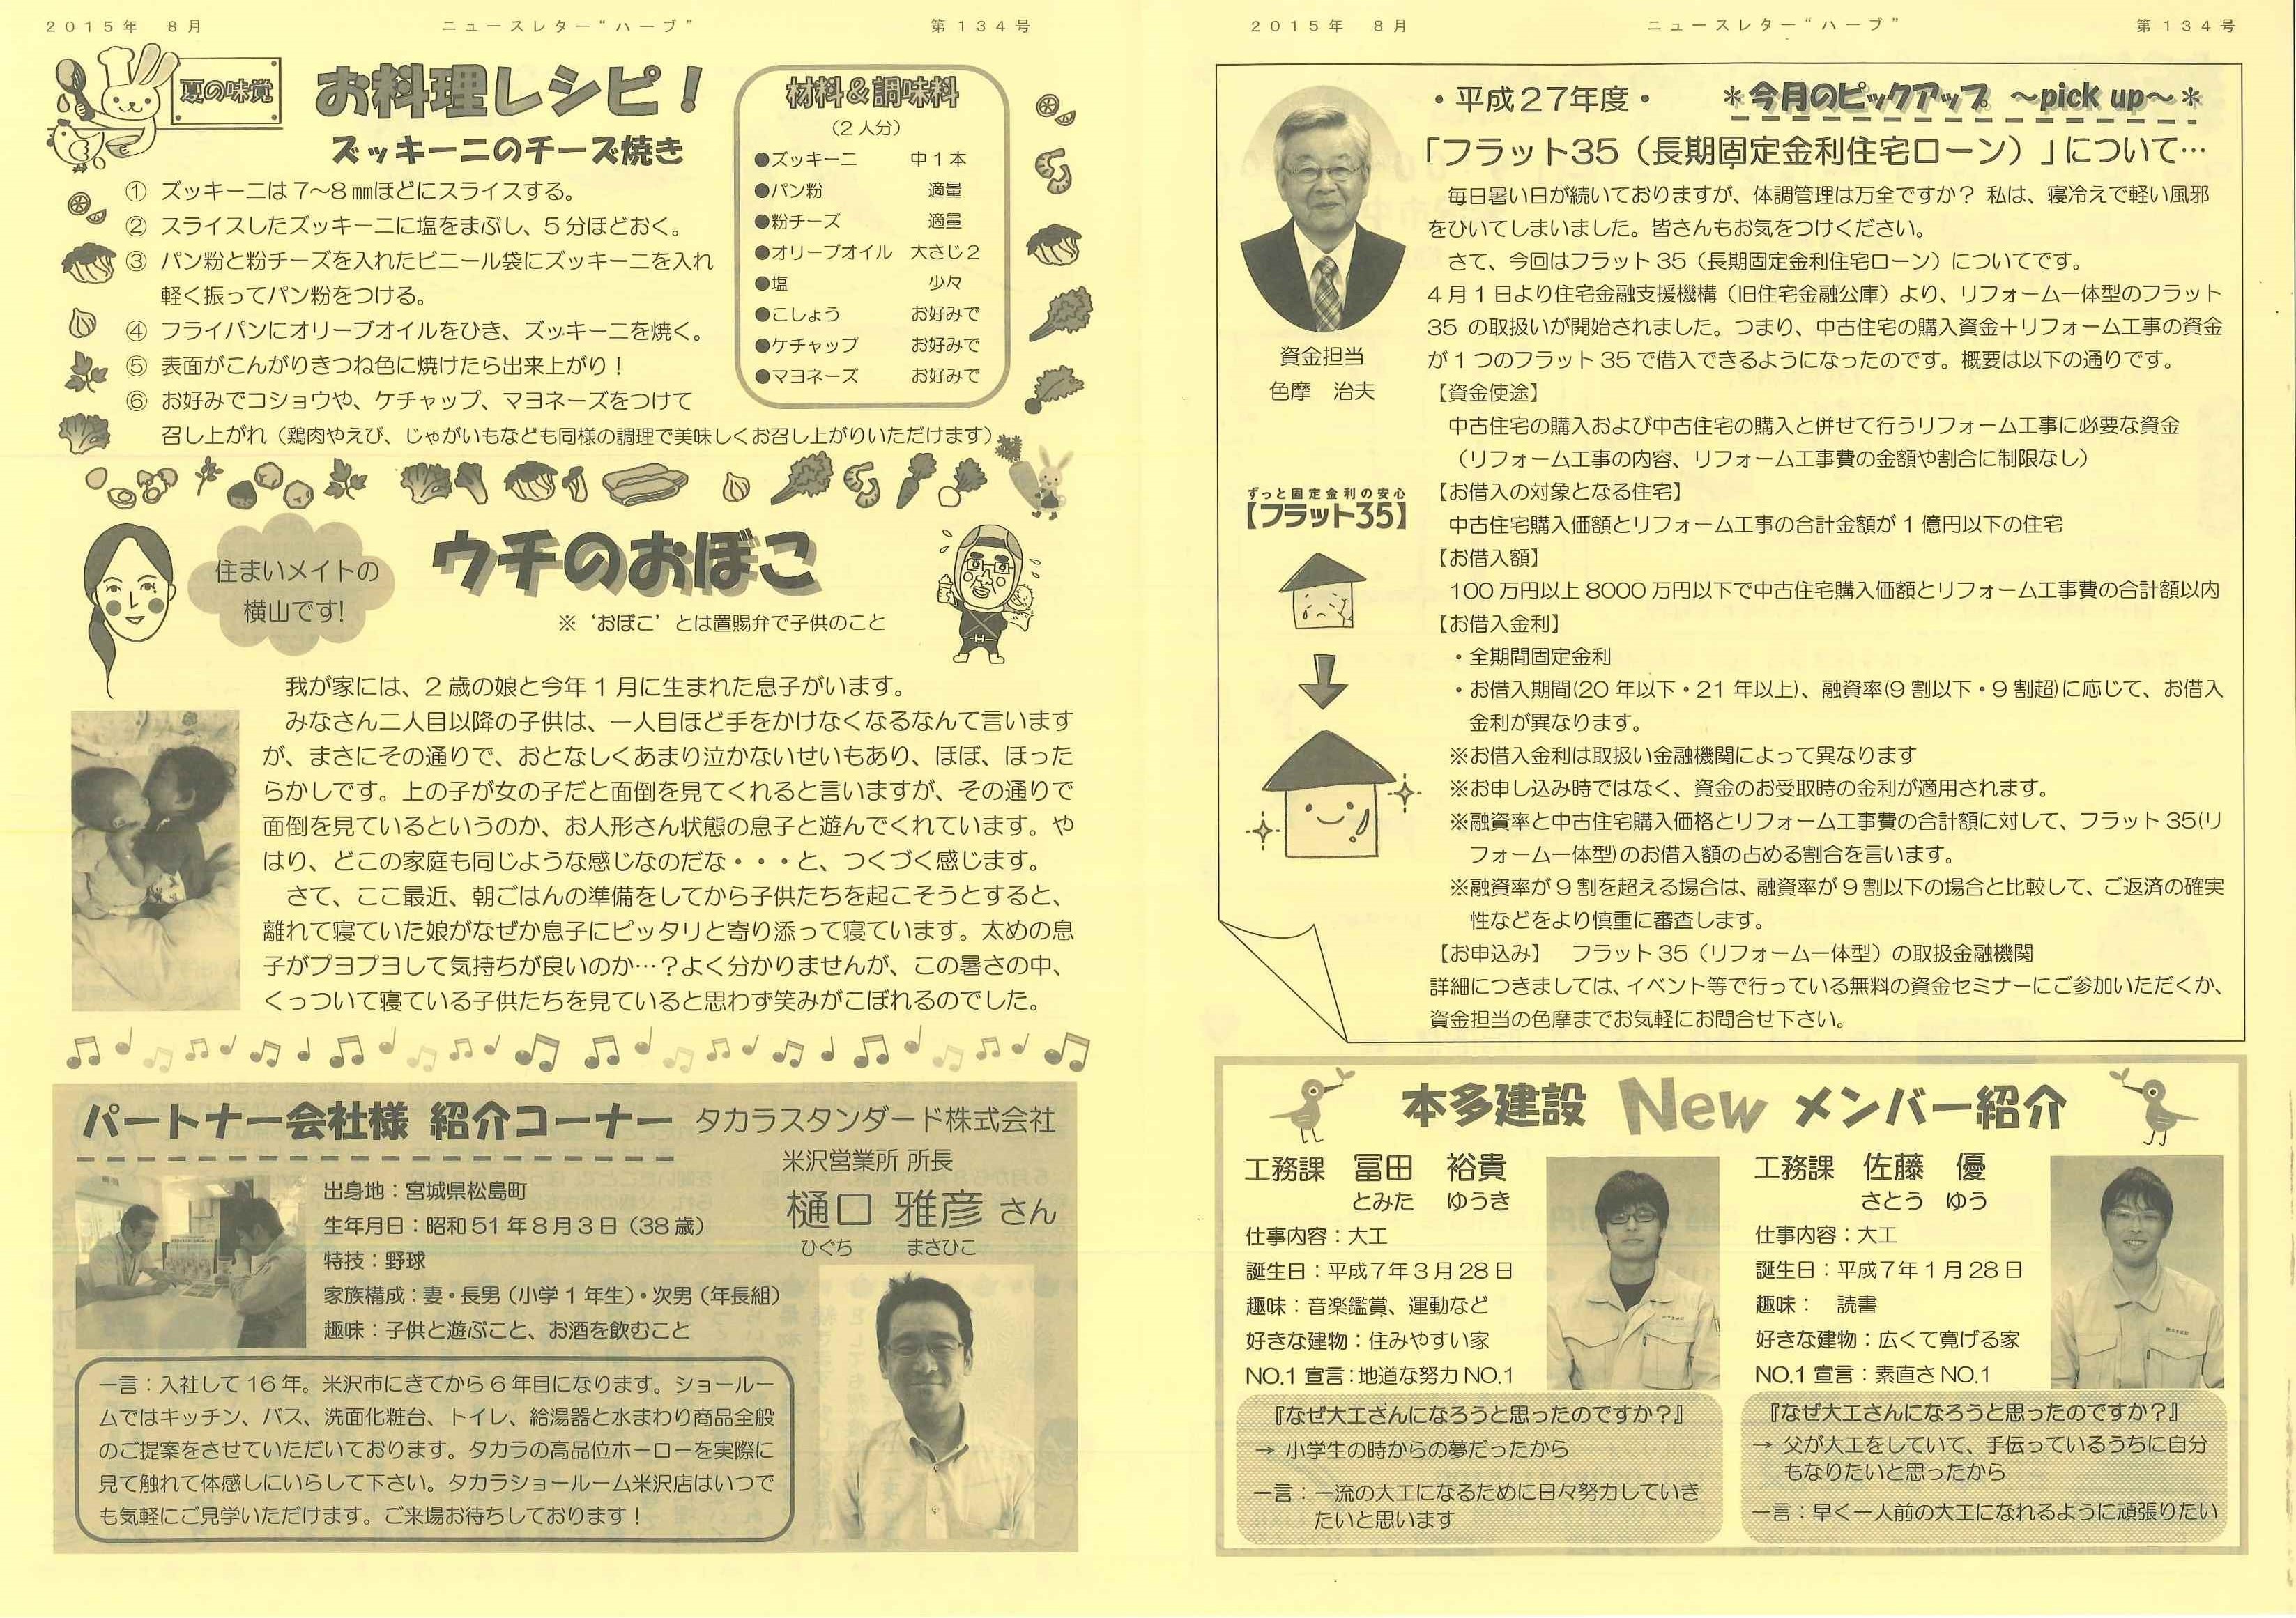 2015年　8月
ニュースレター“ハーブ”
第134号
夏の味覚
お料理レシピ！
ズッキーニのチーズ焼き
① ズッキーニは7～8㎜ほどにスライスする。
② スライスしたズッキーニに塩をまぶし、5分ほどおく。
③ パン粉と粉チーズを入れたビニール袋にズッキーニを入れ
軽く振ってパン粉をつける。
④ フライパンにオリーブオイルをひき、ズッキーニを焼く。
⑤ 表面がこんがりきつね色に焼けたら出来上がり！
⑥ お好みでコショウや、ケチャップ、マヨネーズをつけて
召し上がれ（鶏肉やえび、じゃがいもなども同様の調理で美味しくお召し上がりいただけます）
材料＆調味料
（2人分）
●ズッキーニ　中1本
●パン粉　適量
●粉チーズ　適量
●オリーブオイル　大さじ2
●塩　少々
●こしょう　お好みで
●ケチャップ　お好みで
●マヨネーズ　お好みで
住まいメイトの
横山です!
ウチのおぼこ
※‘おぼこ’とは置賜弁で子供のこと
我が家には、2歳の娘と今年1月に生まれた息子がいます。
みなさん二人目以降の子供は、一人目ほど手をかけなくなるなんて言います
が、まさにその通りで、おとなしくあまり泣かないせいもあり、ほぼ、ほった
らかしです。上の子が女の子だと面倒を見てくれると言いますが、その通りで
面倒を見ているというのか、お人形さん状態の息子と遊んでくれています。や
はり、どこの家庭も同じような感じなのだな・・・と、つくづく感じます。
さて、ここ最近、朝ごはんの準備をしてから子供たちを起こそうとすると、
離れて寝ていた娘がなぜか息子にピッタリと寄り添って寝ています。太めの息
子がプヨプヨして気持ちが良いのか…？よく分かりませんが、この暑さの中、
くっついて寝ている子供たちを見ていると思わず笑みがこぼれるのでした。
パートナー会社様 紹介コーナー
タカラスタンダード株式会社
米沢営業所 所長
樋口 雅彦 さん
ひぐち　まさひこ
出身地：宮城県松島町
生年月日：昭和51年8月3日（38歳）
特技：野球
家族構成：妻・長男（小学1年生）・次男（年長組）
趣味：子供と遊ぶこと、お酒を飲むこと
一言：入社して16年。米沢市にきてから6年目になります。ショールー
ムではキッチン、バス、洗面化粧台、トイレ、給湯器と水まわり商品全般
のご提案をさせていただいております。タカラの高品位ホーローを実際に
見て触れて体感しにいらして下さい。タカラショールーム米沢店はいつで
も気軽にご見学いただけます。ご来場お待ちしております！
2015年　8月
ニュースレター“ハーブ”
第134号
・平成27年度・
＊今月のピックアップ ～pick up～＊
「フラット35（長期固定金利住宅ローン）」について…
資金担当
色摩　治夫
毎日暑い日が続いておりますが、体調管理は万全ですか？ 私は、寝冷えで軽い風邪
をひいてしまいました。皆さんもお気をつけください。
さて、今回はフラット35（長期固定金利住宅ローン）についてです。
4月1日より住宅金融支援機構（旧住宅金融公庫）より、リフォーム一体型のフラット
35の取扱いが開始されました。つまり、中古住宅の購入資金＋リフォーム工事の資金
が1つのフラット35で借入できるようになったのです。概要は以下の通りです。
【資金使途】
中古住宅の購入および中古住宅の購入と併せて行うリフォーム工事に必要な資金
（リフォーム工事の内容、リフォーム工事費の金額や割合に制限なし）
【お借入の対象となる住宅】
中古住宅購入価額とリフォーム工事の合計金額が1億円以下の住宅
【お借入額】
100万円以上8000万円以下で中古住宅購入価額とリフォーム工事費の合計額以内
【お借入金利】
・全期間固定金利
・お借入期間(20年以下・21年以上)、融資率(9割以下・9割超)に応じて、お借入
金利が異なります。
※お借入金利は取扱い金融機関によって異なります
※お申し込み時ではなく、資金のお受取時の金利が適用されます。
※融資率と中古住宅購入価格とリフォーム工事費の合計額に対して、フラット35(リ
フォーム一体型)のお借入額の占める割合を言います。
※融資率が9割を超える場合は、融資率が9割以下の場合と比較して、ご返済の確実
性などをより慎重に審査します。
【お申込み】　フラット35（リフォーム一体型）の取扱金融機関
詳細につきましては、イベント等で行っている無料の資金セミナーにご参加いただくか、
資金担当の色摩までお気軽にお問合せ下さい。
ずっと固定金利の安心
【フラット35】
本多建設 New メンバー紹介
工務課　冨田　裕貴
とみた　ゆうき
仕事内容：大工
誕生日：平成7年3月28日
趣味：音楽鑑賞、運動など
好きな建物：住みやすい家
NO.1宣言：地道な努力NO.1
『なぜ大工さんになろうと思ったのですか?』
→ 小学生の時からの夢だったから
一言：一流の大工になるために日々努力していき
たいと思います
工務課　佐藤　優
さとう　ゆう
仕事内容：大工
誕生日：平成7年1月28日
趣味：　読書
好きな建物：広くて寛げる家
NO.1宣言：素直さNO.1
『なぜ大工さんになろうと思ったのですか?』
→ 父が大工をしていて、手伝っているうちに自分
もなりたいと思ったから
一言：早く一人前の大工になれるように頑張りたい